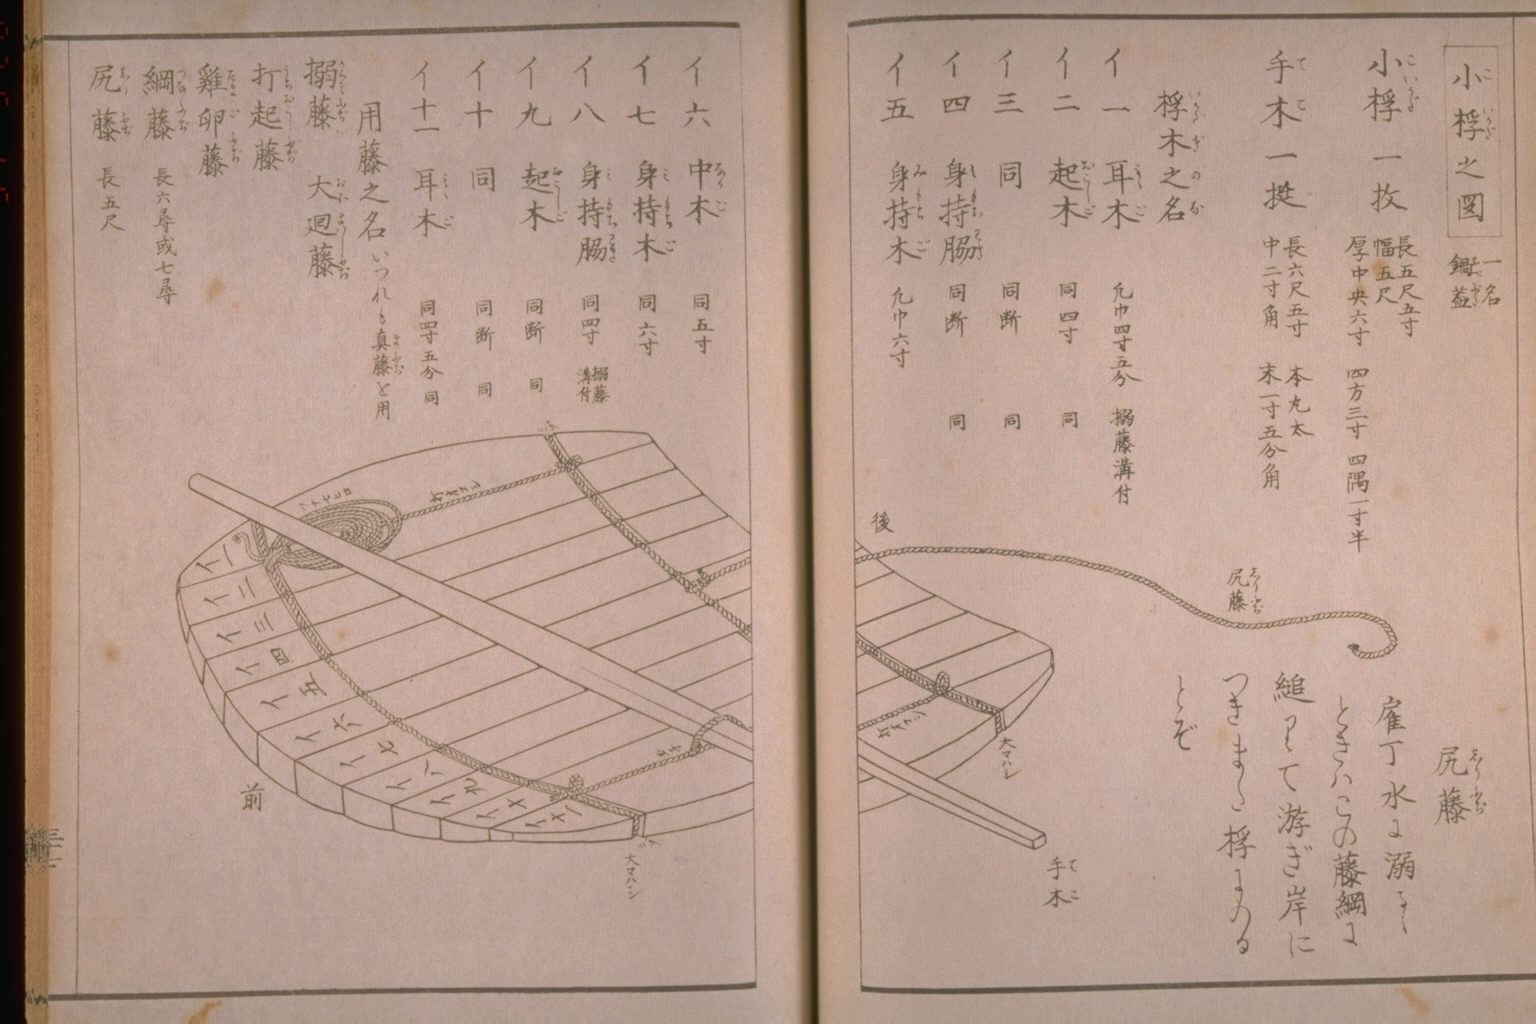 小桴之図
一名
鍋蓋
小桴一枚
長五尺五寸
幅五尺
厚中央六寸 四方三寸 四隅一寸半
手木一挺
長六尺五寸 本丸太
中二寸角 末一寸五分角
桴木之名
イ一 耳木 凢巾四寸五分 搦藤溝付
イ二 起木 同四寸 同
イ三 同 同断 同
イ四 身持脇 同断 同
イ五 身持木 凢巾六寸
後
尻藤
尻藤
雇丁水に溺るゝ
ときハこの藤綱に
縋りて游ぎ岸に
つきまた桴にのる
とぞ
大マハシ
打オコシ
手木
イ六 中木 同五寸
イ七 身持木 同六寸
イ八 身持脇 同四寸 搦藤溝付
イ九 起木 同断 同
イ十 同 同断 同
イ十一 耳木 同四寸五分 同
用藤之名 いつれも真藤を用
搦藤 大廻藤
打起藤
雞卵藤
綱藤 長六尋或七尋
尻藤 長五尺
打オコシ
イ一
イ二
イ三
イ四
イ五
イ六
イ七
イ八
イ九
イ十
イ十一
前
大マハシ